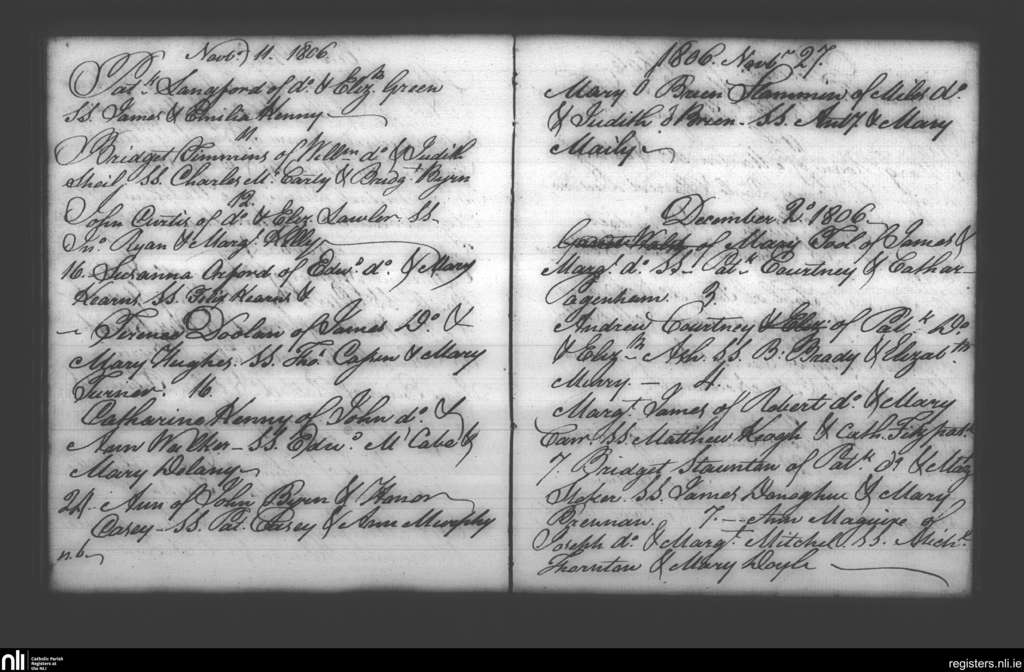 Novbr. 11. 1806
Patk. Langford of do. & Eliz.th Green
SS. James & Emilia Kenny
11.
Bridget Timmins of Willm. do. & Judith
Sheil, SS. Charles Mc. Carty & Bridgt. Byrn
12.
John Curtis of do. & Eliz. Lawler. SS.
Jno. Ryan & Margt. Kelly
16. Susanna Orford of Edwd. do. & Mary
Kearns SS. Felix Kearns &
Terence Doolan of James Do. &
Mary Hughes. SS. Thos. & Mary
Turner. 16.
Catharine Kenny of John do. &
Ann Walker - SS. Edwd. Mc Cabe &
Mary Delany
24 - Ann of John Byrn & Honor
Casey - SS. Pat. Casey & Ann Murphy
n.b.
1806. Novbr. 27.
Mary O Brien of Miles do.
& Judith O Brien - SS. Anty. & Mary
December 2o. 1806
of Mary Tool of James &
Margt. do. SS - Patk. Courtney & Cathar-
3.
Andrew Courtney & Eliz. of Patk. Do.
& Eliz.th Ash. SS. B. Brady & Elizabth.
Murry. - 4.
Margt. James of Robert do. & Mary
Carr. SS. Matthew Keogh & Cath. Fitzpatk.
7. Bridget Staunton of Patk. do. &
SS. James Donoghue & Mary
Brennan. 7. - Ann Maguire of
Joseph do. & Margt. Mitchel. SS. Michl.
Thornton & Mary Doyle
nli
Catholic Parish
Registers at
the NLI
registers.nli.ie